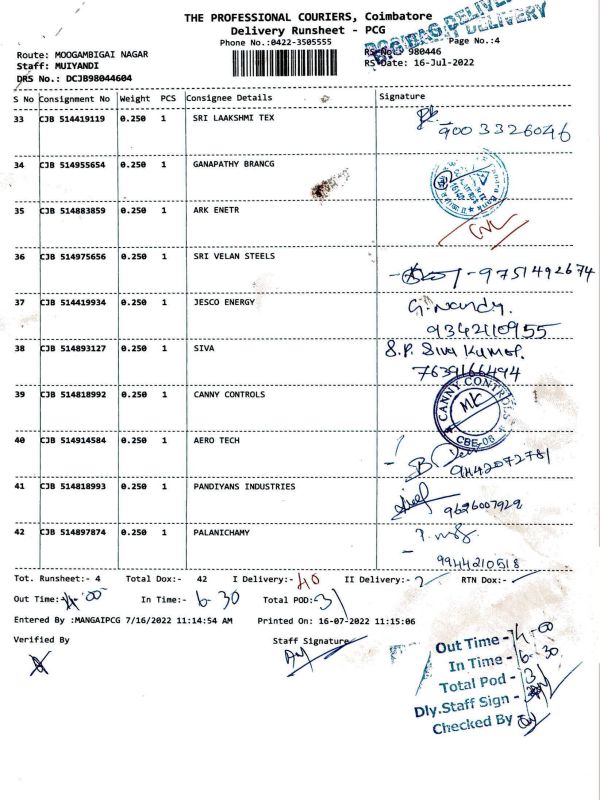 THE PROFESSIONAL COURIERS, Coimbatore
Delivery Runsheet - PCG
Phone No.:0422-3505555
Page No.:4
Route: MOOGAMBIGAI NAGAR
RS No.: 980446
Staff: MUIYANDI
RS Date: 16-Jul-2022
DRS No.: DCJB98044604
S No Consignment No Weight PCS Consignee Details Signature
33 CJB 514419119 0.250 1 SRI LAAKSHMI TEX
9003326046
34 CJB 514955654 0.250 1 GANAPATHY BRANCG
35 CJB 514883859 0.250 1 ARK ENETR
36 CJB 514975656 0.250 1 SRI VELAN STEELS
- 9751492674
37 CJB 514419934 0.250 1 JESCO ENERGY G. Nandy.
9342110955
38 CJB 514893127 0.250 1 SIVA S.P. Siva Kumar.
7639166494
39 CJB 514818992 0.250 1 CANNY CONTROLS
CANNY CONTROLS
MK
CBE-06
40 CJB 514914584 0.250 1 AERO TECH
9442072781
41 CJB 514818993 0.250 1 PANDIYANS INDUSTRIES
9626007929
42 CJB 514897874 0.250 1 PALANICHAMY
9944210518
Tot. Runsheet:- 4 Total Dox:- 42 I Delivery:- 40 II Delivery:- 2 RTN Dox:-
Out Time:- 4-00 In Time:- 6-30 Total POD:- 31
Entered By :MANGAIPCG 7/16/2022 11:14:54 AM Printed On: 16-07-2022 11:15:06
Verified By Staff Signature
Out Time - 4-00
In Time - 6-30
Total Pod - 3
Dly.Staff Sign -
Checked By -